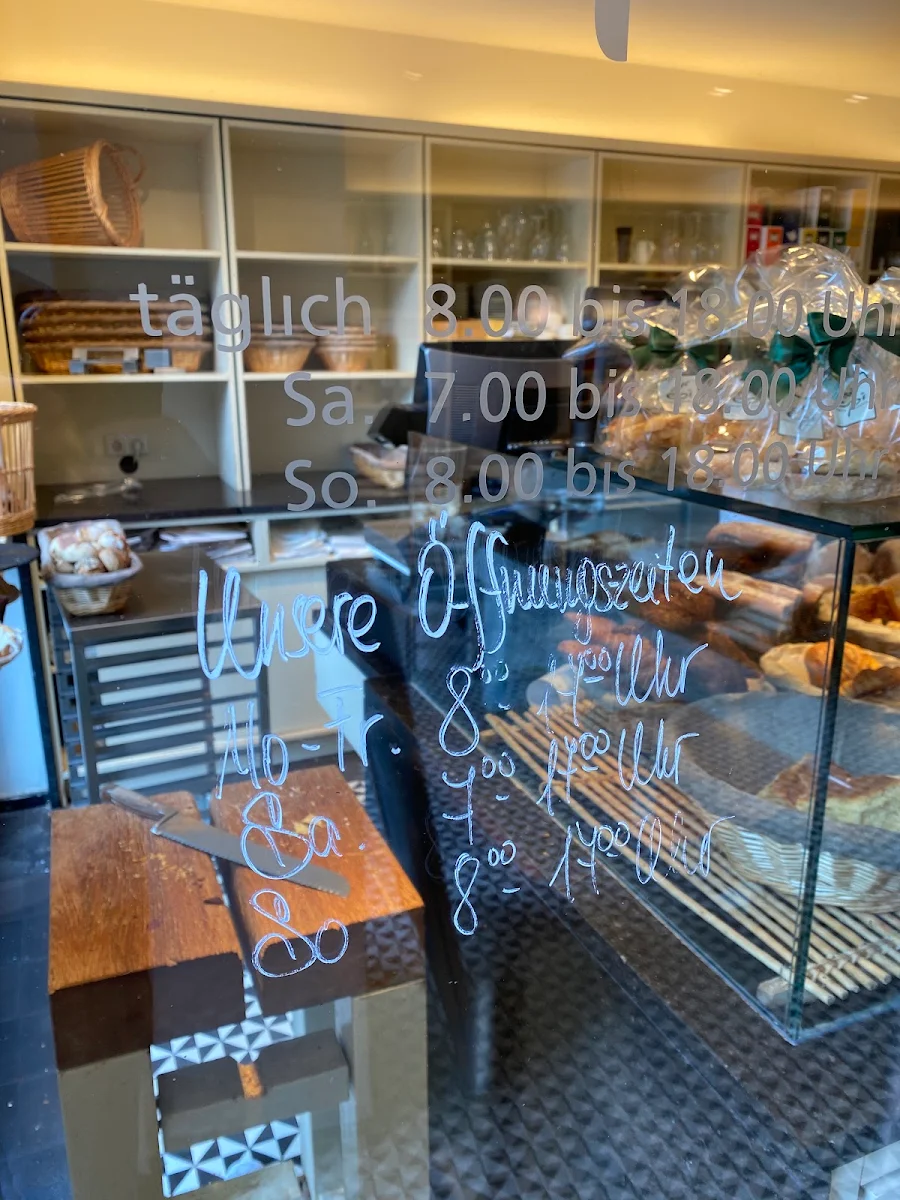 täglich 8.00 bis 18.00 Uhr
Sa. 7.00 bis 18.00 Uhr
So. 8.00 bis 18.00 Uhr
Unsere Öffnungszeiten
Mo-Fr. 8⁰⁰- 17⁰⁰ Uhr
Sa. 7⁰⁰- 17⁰⁰ Uhr
So 8⁰⁰- 17⁰⁰ Uhr